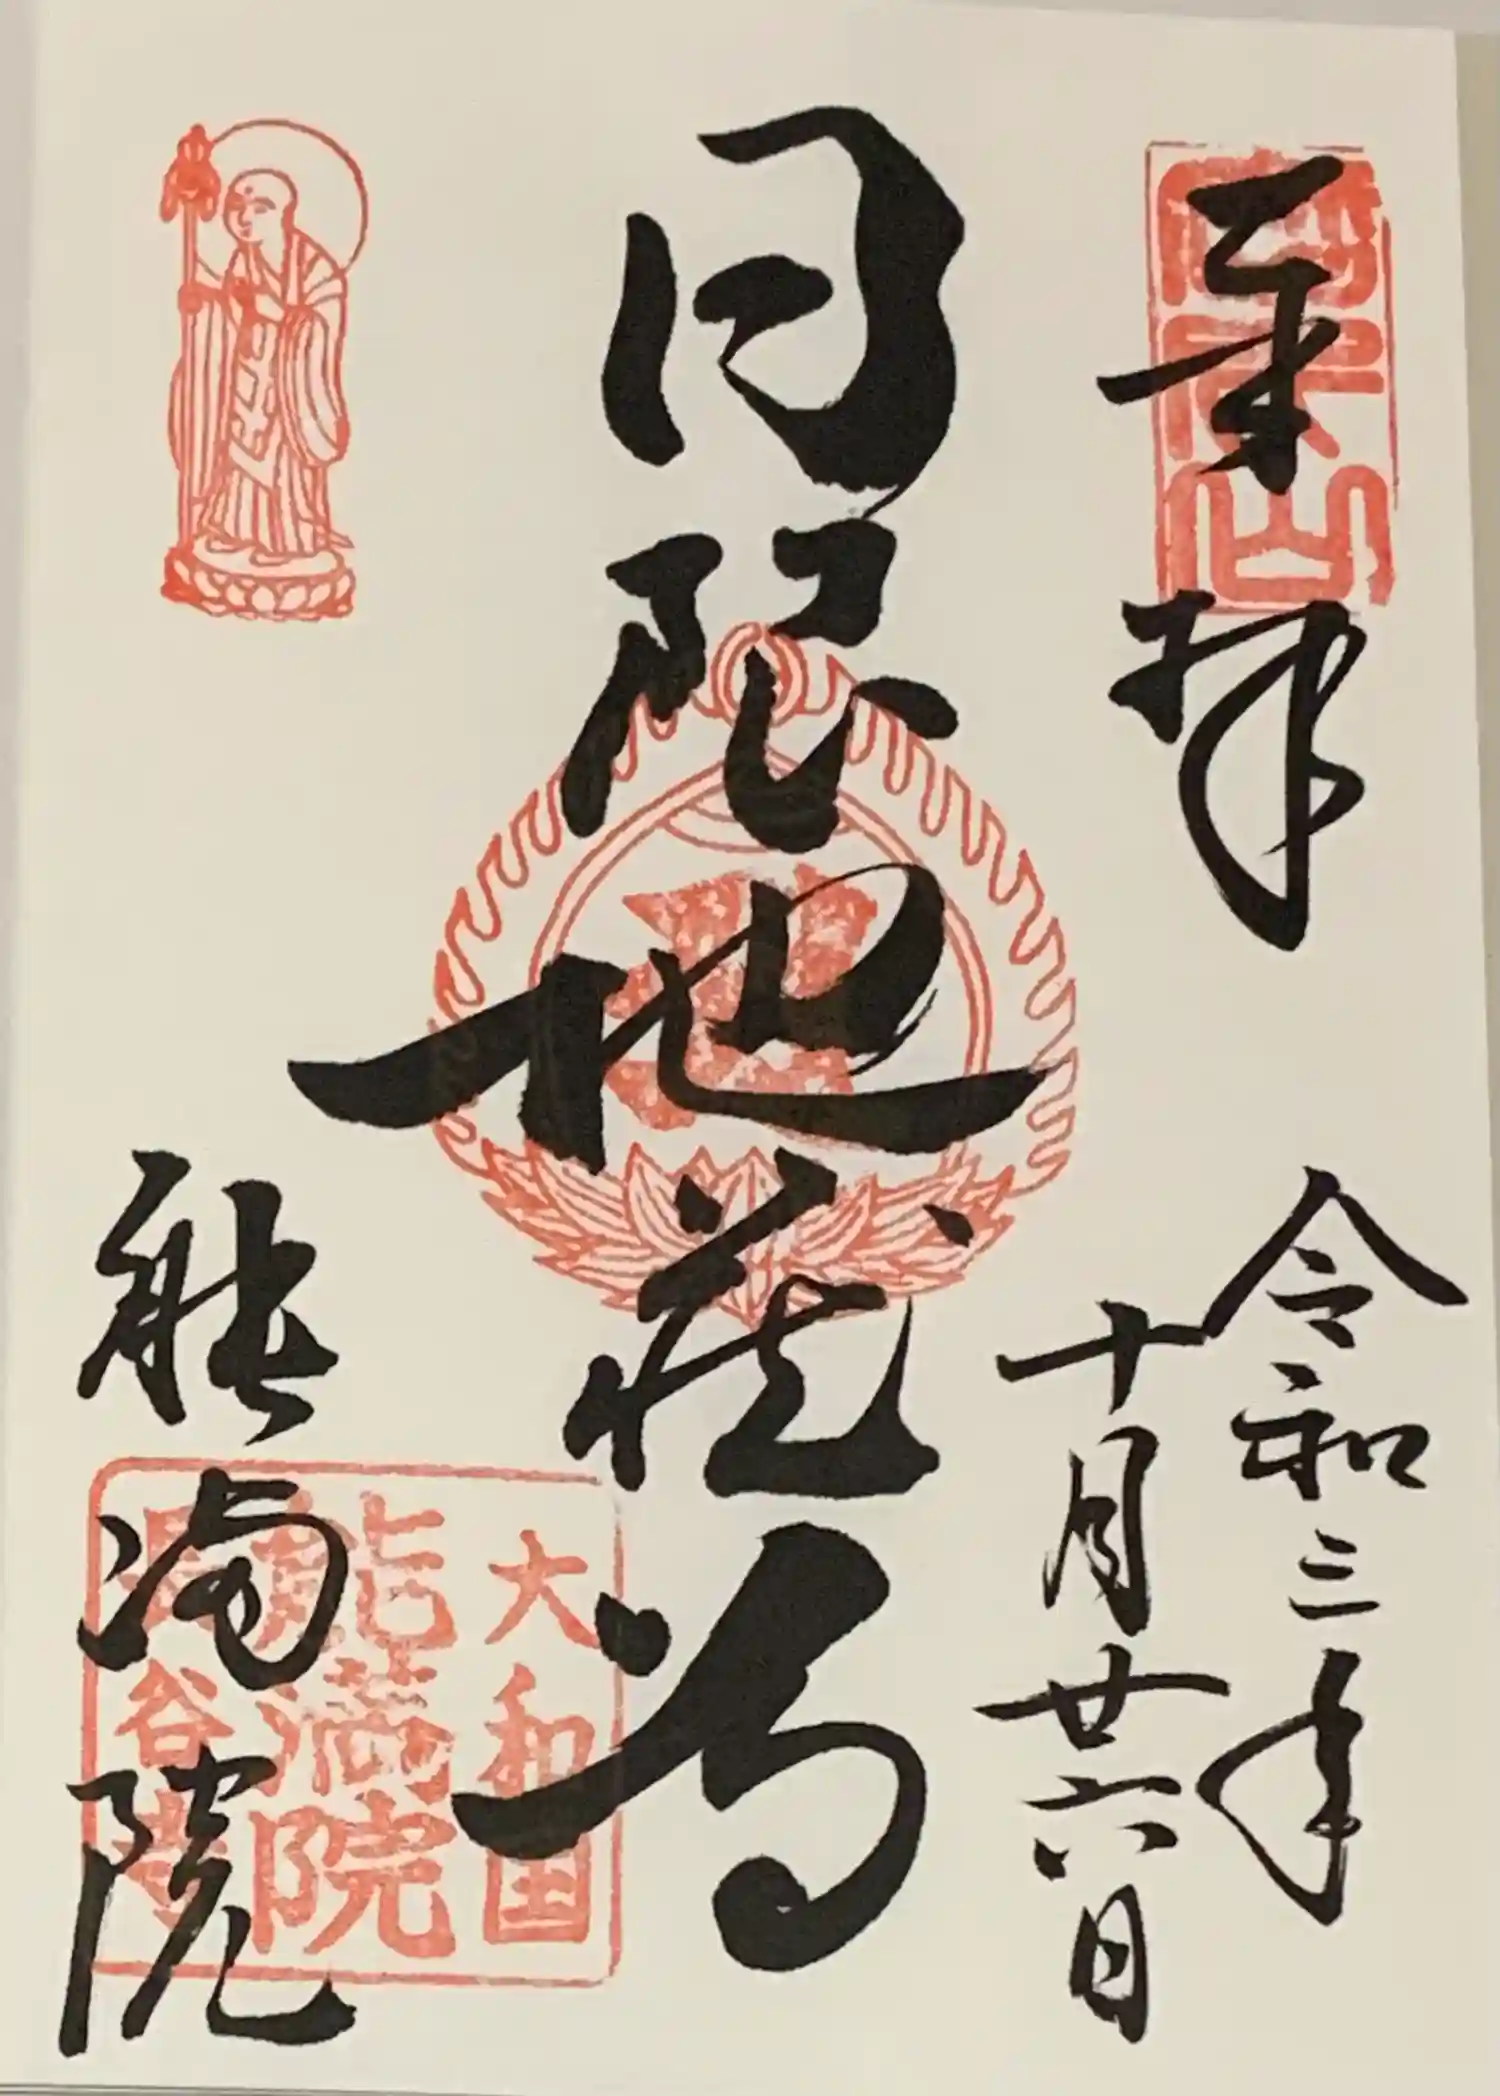 奉拝
令和三年
十月廿六日
日限地蔵尊
能満院
大和国
能満院
長谷寺